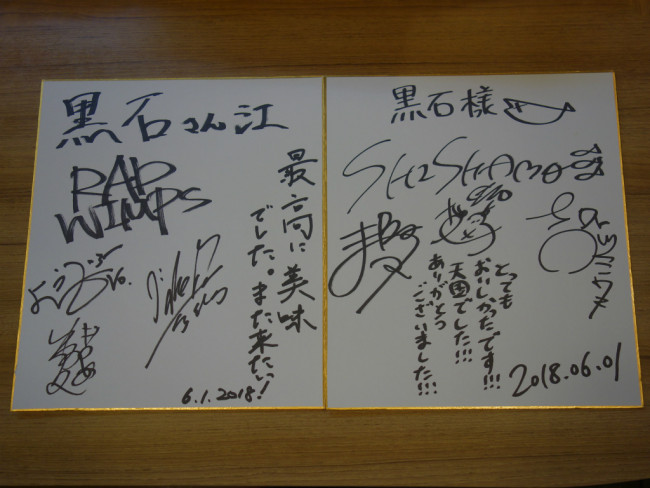 黒石さん江
RAD
WIMPS
最高に美味
でした。また来たい!
6.1.2018!
黒石様
SHISHAMO
とっても
おいしかったです!!!
天国でした!!!
ありがとう
ございました!!!
2018.06.01